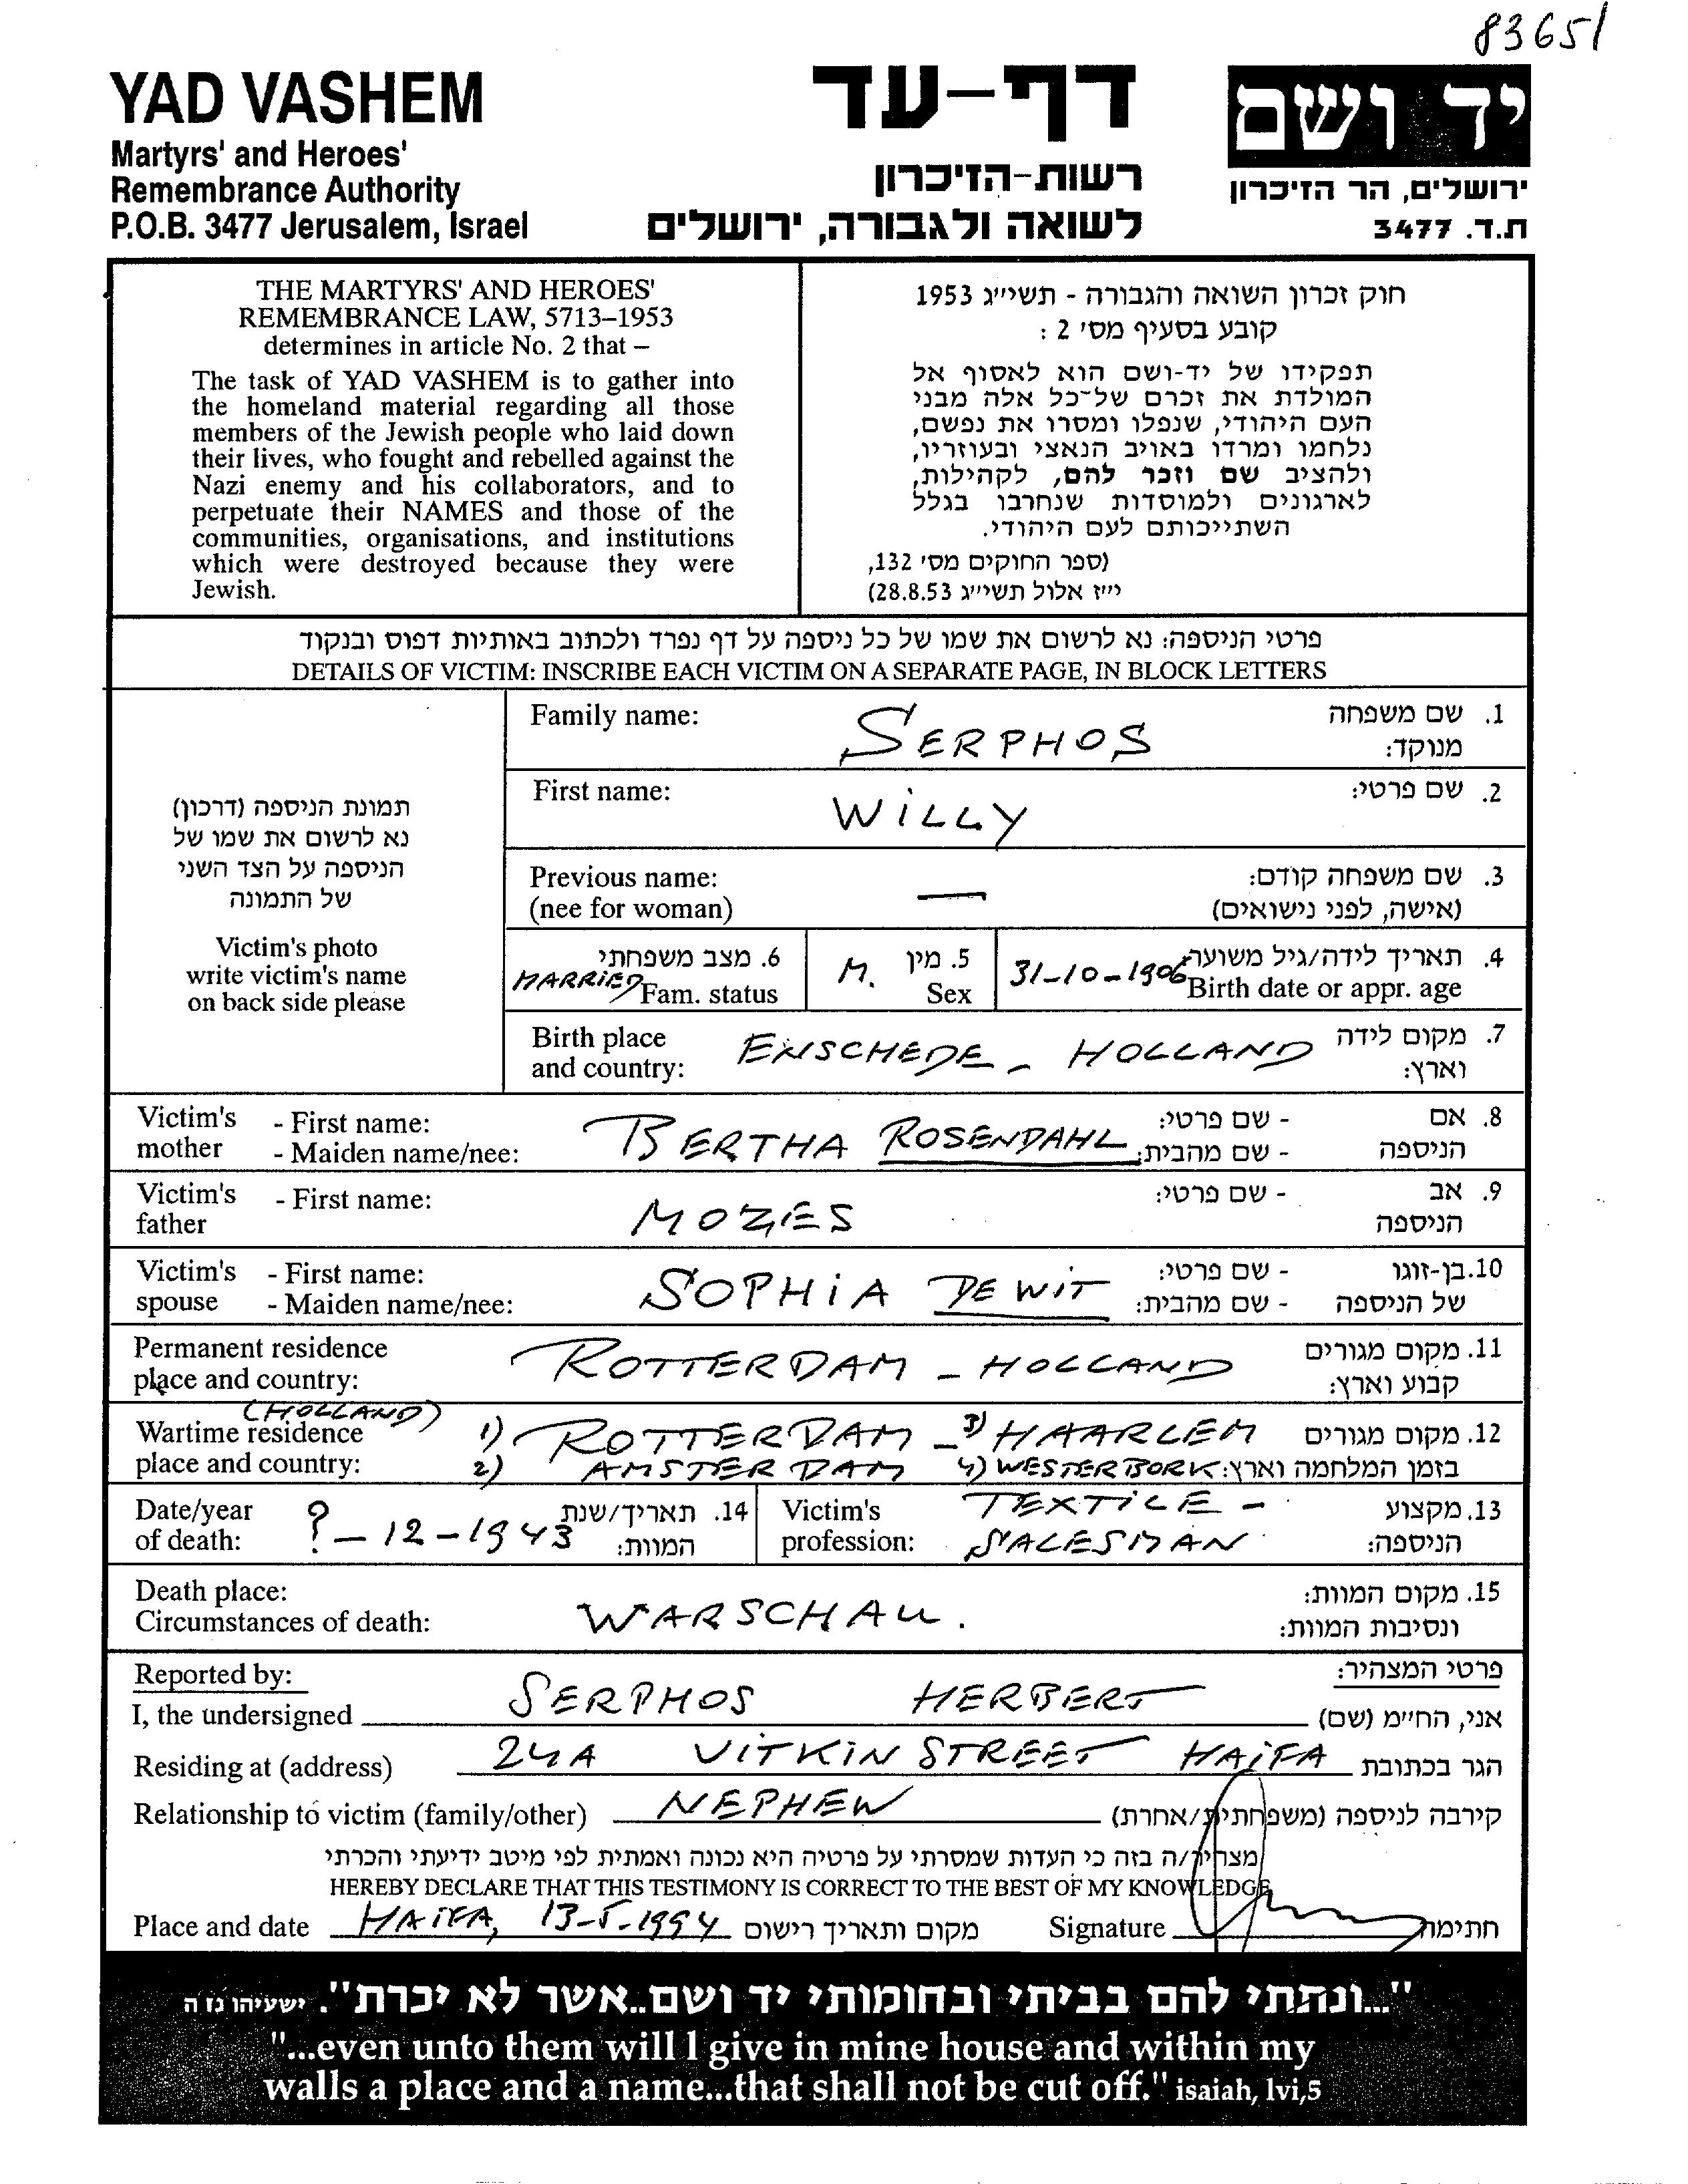 83651
YAD VASHEM
Martyrs' and Heroes'
Remembrance Authority
P.O.B. 3477 Jerusalem, Israel
דף-עד
רשות-הזיכרון
לשואה ולגבורה, ירושלים
יד ושם
ירושלים, הר הזיכרון
ת.ד. 3477
THE MARTYRS' AND HEROES'
REMEMBRANCE LAW, 5713–1953
determines in article No. 2 that –
The task of YAD VASHEM is to gather into
the homeland material regarding all those
members of the Jewish people who laid down
their lives, who fought and rebelled against the
Nazi enemy and his collaborators, and to
perpetuate their NAMES and those of the
communities, organisations, and institutions
which were destroyed because they were
Jewish.
חוק זכרון השואה והגבורה - תשי״ג 1953
קובע בסעיף מס׳ 2 :
תפקידו של יד-ושם הוא לאסוף אל
המולדת את זכרם של-כל אלה מבני
העם היהודי, שנפלו ומסרו את נפשם,
נלחמו ומרדו באויב הנאצי ובעוזריו,
ולהציב שם וזכר להם, לקהילות,
לארגונים ולמוסדות שנחרבו בגלל
השתייכותם לעם היהודי.
(ספר החוקים מס׳ 132,
י״ז אלול תשי״ג 28.8.53)
פרטי הניספה: נא לרשום את שמו של כל ניספה על דף נפרד ולכתוב באותיות דפוס ובנקוד
DETAILS OF VICTIM: INSCRIBE EACH VICTIM ON A SEPARATE PAGE, IN BLOCK LETTERS
תמונת הניספה (דרכון)
נא לרשום את שמו של
הניספה על הצד השני
של התמונה
Victim's photo
write victim's name
on back side please
Family name: SERPHOS 1. שם משפחה
מנוקד:
First name: WILLY 2. שם פרטי:
Previous name: — 3. שם משפחה קודם:
(nee for woman) (אישה, לפני נישואים)
6. מצב משפחתי 5. מין 4. תאריך לידה/גיל משוער
MARRIED Fam. status M. Sex 31-10-1906 Birth date or appr. age
Birth place ENSCHEDE - HOLLAND 7. מקום לידה
and country: וארץ:
Victim's - First name: - שם פרטי: 8. אם
mother - Maiden name/nee: BERTHA ROSENDAHL - שם מהבית: הניספה
Victim's - First name: - שם פרטי: 9. אב
father MOZES הניספה
Victim's - First name: - שם פרטי: 10. בן-זוגו
spouse - Maiden name/nee: SOPHIA DE WIT - שם מהבית: של הניספה
Permanent residence ROTTERDAM - HOLLAND 11. מקום מגורים
place and country: קבוע וארץ:
(HOLLAND)
Wartime residence 1) ROTTERDAM - 3) HAARLEM 12. מקום מגורים
place and country: 2) AMSTERDAM 4) WESTERBORK בזמן המלחמה וארץ:
Date/year 14. תאריך/שנת Victim's TEXTILE - 13. מקצוע
of death: ? - 12 - 1943 המוות: profession: SALESMAN הניספה:
Death place: 15. מקום המוות:
Circumstances of death: WARSCHAU. ונסיבות המוות:
Reported by: פרטי המצהיר:
I, the undersigned SERPHOS HERBERT אני, הח״מ (שם)
Residing at (address) 24A VITKIN STREET HAIFA הגר בכתובת
Relationship to victim (family/other) NEPHEW קירבה לניספה (משפחתית/אחרת)
מצהיר/ה בזה כי העדות שמסרתי על פרטיה היא נכונה ואמתית לפי מיטב ידיעתי והכרתי
HEREBY DECLARE THAT THIS TESTIMONY IS CORRECT TO THE BEST OF MY KNOWLEDGE
Place and date HAIFA, 13-5-1994 מקום ותאריך רישום Signature חתימה
"...ונתתי להם בביתי ובחומותי יד ושם..אשר לא יכרת". ישעיהו נז ה
"...even unto them will I give in mine house and within my
walls a place and a name...that shall not be cut off." isaiah, lvi,5